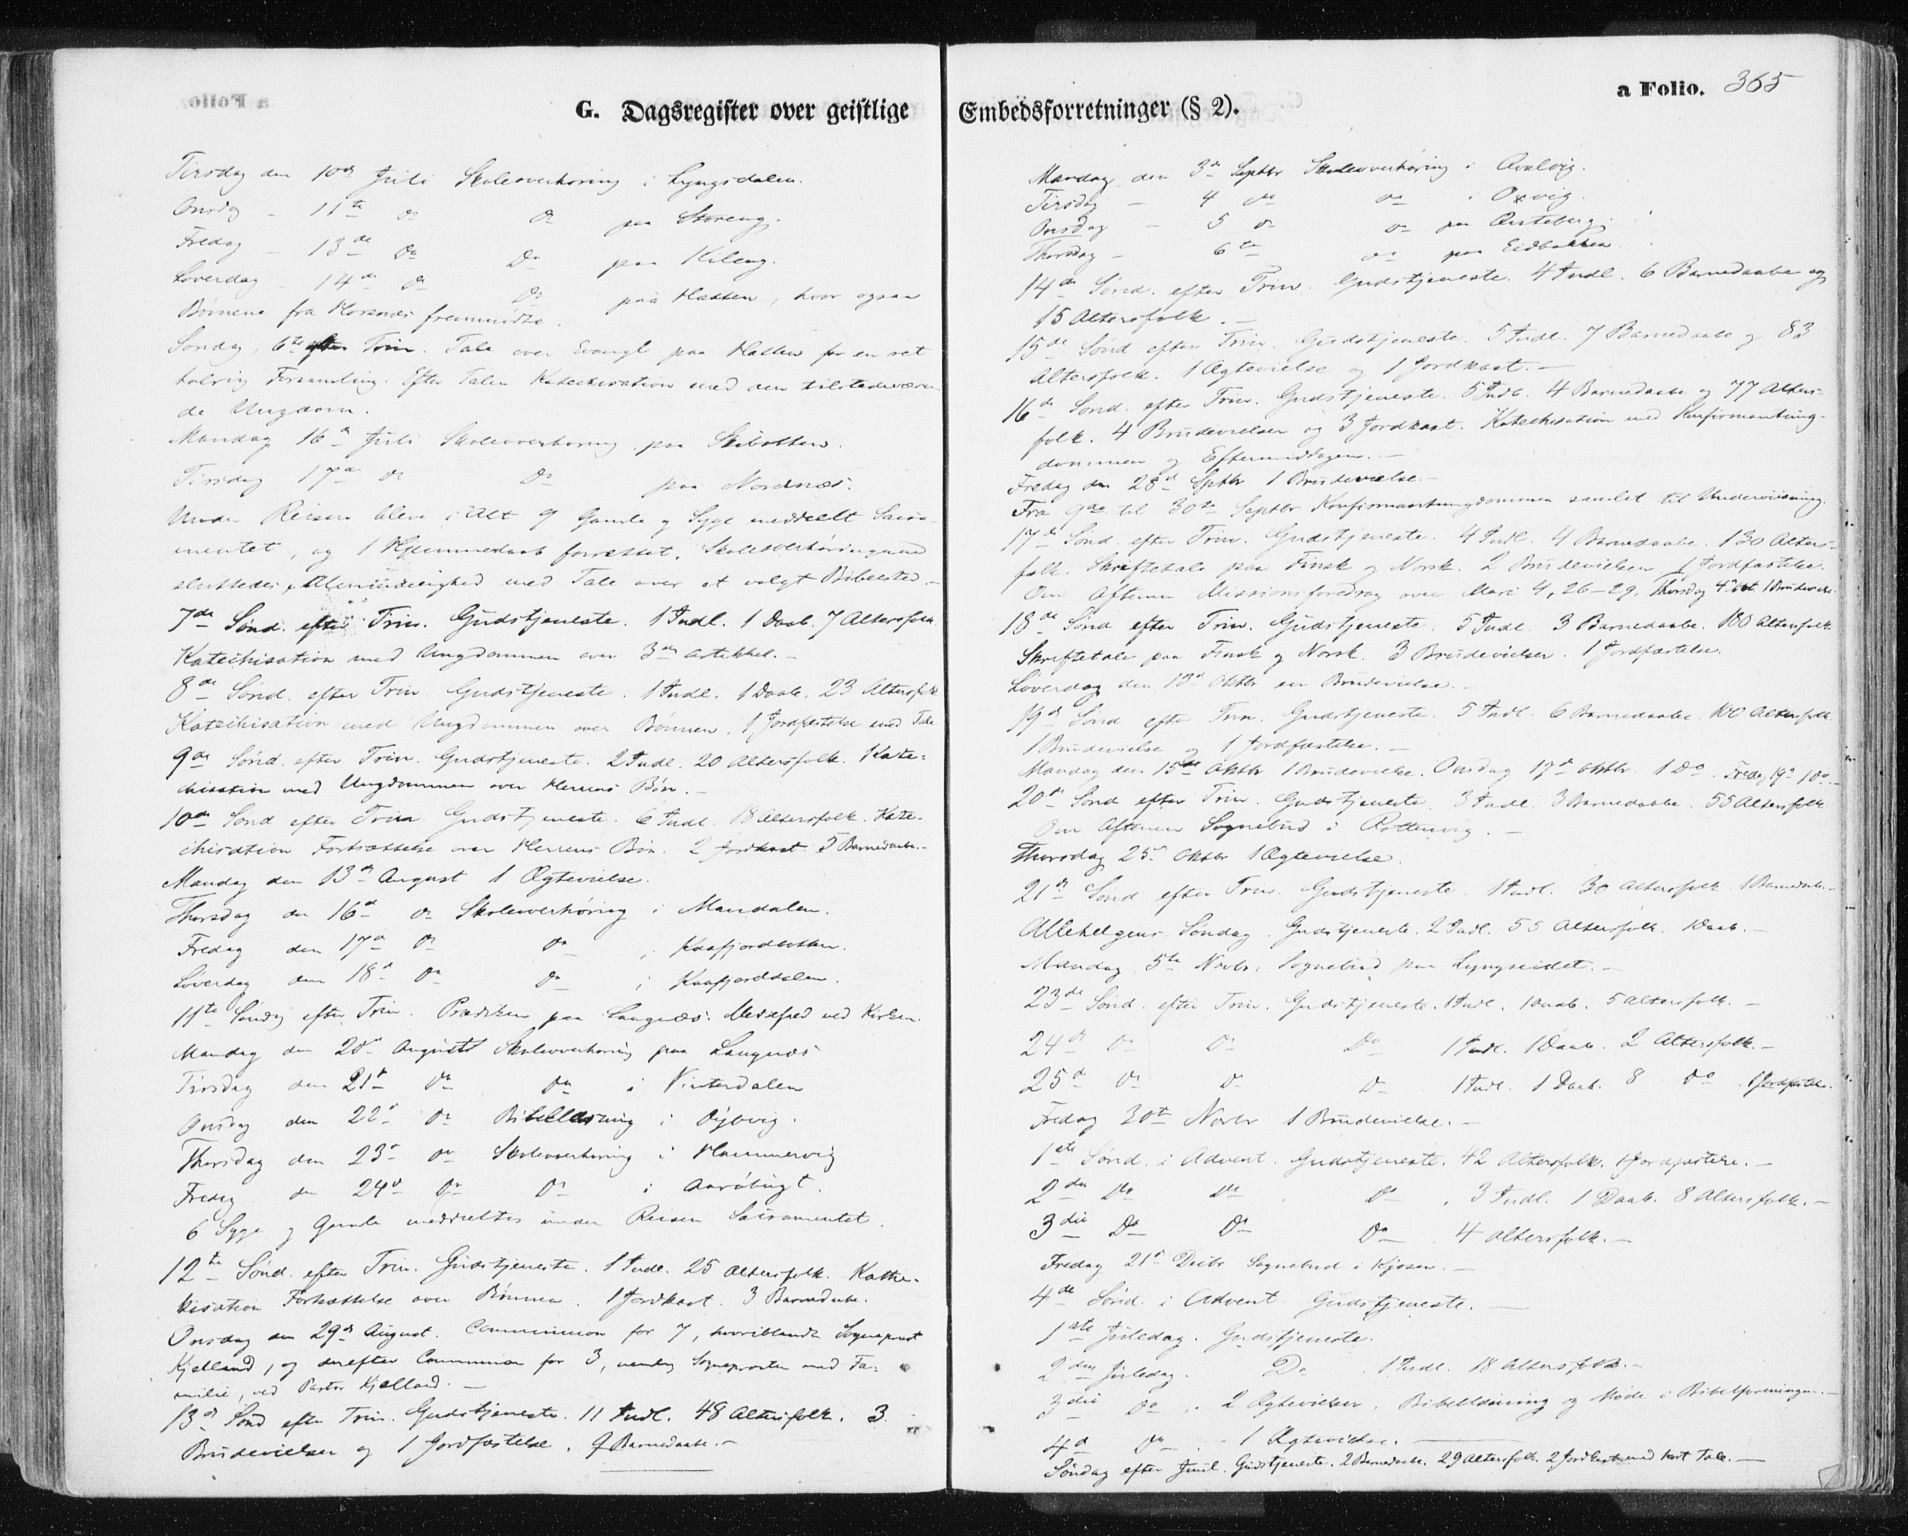 G. Dagsregister over geistlige
Tirsdag den 10de Juli Skoleoverhøring i Lyngsdalen.
Onsdag - 11te do do paa Storeng.
Fredag - 13de do do paa Kileng.
Løverdag - 14de do do paa Hatten, hvor ogsaa
Børnene fra Horsnæs fremmødte.
Søndag, 6te efter Trin. Tale over Evangl paa Hatten for en ret
talrig Forsamling. Efter Talen Katechisation med den tilstedeværen
de Ungdom.
Mandag 16de Juli Skoleoverhøring paa Skibotten.
Tirsdag 17de do do paa Nordnæs.
Under Reisen bleve i Alt 9 Gamle og Syge meddeelt Sacra-
mentet, og 1 Hjemmedaab forrettet. Skoleoverhøringerne
sluttedes i Almindelighed med Tale over et valgt Bibelsted.-
7de Sønd. efter Trin. Gudstjeneste. 1 Indl. 1 Daab. 7 Altersfolk.
Katechisation med Ungdommen over 3die Artikkel.-
8de Sønd. efter Trin. Gudstjeneste. 1 Indl. 1 Daab. 23 Altersfolk
Katechisation med Ungdommen over Bønnen. 1 Jordfæstelse med Tale
9de Sønd. efter Trin. Gudstjeneste. 2 Indl. 20 Altersfolk. Kate-
chisation med Ungdommen over Herrens Bøn.-
10de Sønd efter Trin Gudstjeneste. 6 Indl. 18 Altersfolk. Kate-
chisation Fortsættelse over Herrens Bøn. 2 Jordkast. 5 Barnedaabe.-
Mandag den 13de August 1 Ægtevielse.
Thorsdag den 16de do Skoleoverhøring i Mandalen.
Fredag den 17de do do i Kaafjordbotten.
Løverdag den 18de do do i Kaafjorddalen.
11te Søndag efter Trin. Prædiken paa Langnæs. Messefred ved Kirken.
Mandag den 20de August Skoleoverhøring paa Langnæs
Tirsdag den 21de do do i Vinterdalen
Onsdag den 22de do Bibellæsning i
Thorsdag den 23de do Skoleoverhøring i Hammervig
Fredag den 24de do do i Aarøbugt.
6 Syge og Gamle meddeltes under Reisen Sacramentet.
12te Sønd. efter Trin. Gudstjeneste. 1 Indl. 25 Altersfolk. Kathe-
kisation Fortsættelse over Bønnen. 1 Jordkast. 3 Barnedaabe.
Onsdag den 29de August. Communion for 7, hvoriblandt Sogneprest
Kjelland, og derefter Communion for 3, nemlig Sognepresten med Fa-
milie, ved Pastor Kjelland.-
13de Sønd efter Trin. Gudstjeneste. 11 Indl. 48 Altersfolk. 3
Brudevielser og 1 Jordfæstelse. 9 Barnedaabe.-
Embedsforretninger (§ 2).
a Folio. 365
Mandag den 3de Septbr Skoleoverhøring i
Tirsdag - 4 do do i Oxvig.
Onsdag - 5 do do paa
Thorsdag - 6te do paa Eidbakken
14de Sønd. efter Trin. Gudstjeneste. 4 Indl. 6 Barnedaabe og
15 Altersfolk.-
15de Sønd efter Trin. Gudstjeneste. 5 Indl. 7 Barnedaabe og 83
Altersfolk. 1 Ægtevielse og 1 Jordkast.-
16de Sønd. efter Trin. Gudstjeneste. 5 Indl. 4 Barnedaabe og 77 Alters-
folk. 4 Brudevielser og 3 Jordkast. Katechisation med Konfirmantung-
dommen og Eftermiddagen.-
Fredag den 28de Septbr 1 Brudevielse.-
Fra 9de til 30te Septbr Konfirmantungdommen samlet til Underviisning.
17de Sønd. efter Trin. Gudstjeneste. 4 Indl. 4 Barnedaabe. 130 Alters-
folk. Skriftetale paa Finsk og Norsk. 2 Brudevielser 1 Jordfæstelse.
Om Aftenen Missionsforedrag over Marc 4, 26-29. Thorsdag 4de Oct. 1 Brudevielse.
18de Sønd efter Trin. Gudstjeneste. 5 Indl. 3 Barnedaabe. 100 Altersfolk.
Skriftetale paa Finsk og Norsk. 3 Brudevielser. 1 Jordfæstelse.
Løverdag den 13de Oktbr en Brudevielse.-
19de Sønd efter Trin. Gudstjeneste. 5 Indl. 6 Barnedaabe. 100 Altersfolk.
1 Brudevielse og 1 Jordfæstelse.-
Mandag den 15de Oktbr 1 Brudevielse. Onsdag 17de Oktbr. 1 Do. Fredag 19de 1 Do.-
20de Sønd efter Trin. Gudstjeneste. 3 Indl. 3 Barnedaabe. 55 Altersfolk.
Om Aftenen Sognebud i Rottenvig.-
Thorsdag 25de Oktbr 1 Ægtevielse.
21de Sønd efter Trin. Gudstjeneste. 1 Indl. 30 Altersfolk. 1 Barnedaab.-
Allehelgens Søndag. Gudstjeneste. 2 Indl. 55 Altersfolk. 1 Daab.-
Mandag 5te Novbr. Sognebud paa Lyngseidet.-
23de Sønd. efter Trin. Gudstjeneste. 1 Indl. 1 Daab. 5 Altersfolk.-
24de do do do 1 Indl. 1 Daab. 2 Altersfolk.-
25de do do do 1 Indl. 1 Daab. 8 do 1 Jordfæstelse.
Fredag 30te Novbr 1 Brudevielse.-
1ste Sønd. i Advent. Gudstjeneste. 42 Altersfolk. 1 Jordfæstelse.-
2den Do do do. 3 Indl. 1 Daab. 8 Altersfolk.-
3die Do do do 4 Altersfolk.-
Fredag 21de Decbr Sognebud i Kjosen.-
4de Sønd. i Advent Gudstjeneste.-
1ste Juledag. Gudstjeneste.
2den Juledag. Do 1 Indl. 18 Altersfolk.-
3die do. 2 Ægtevielser. Bibellæsning og Møde i Bibelforeningen.-
4de do. - 1 Ægtevielse.-
Søndag efter Juul. Gudstjeneste. 2 Barnedaabe. 29 Altersfolk. 2 Jordkast med kort Tale.-